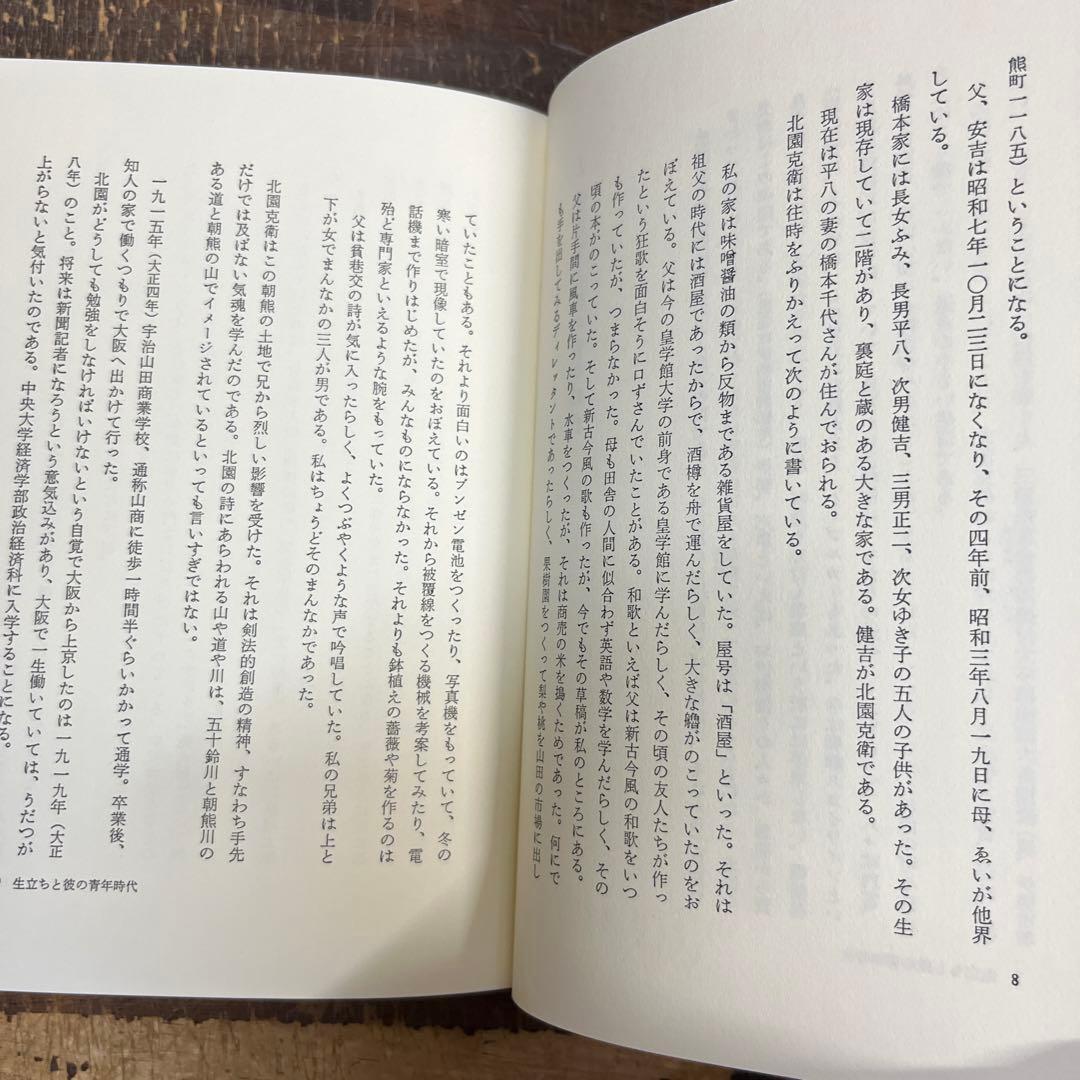 熊町一一八五)ということになる。
父、安吉は昭和七年一〇月二三日になくなり、その四年前、昭和三年八月一九日に母、ゑいが他界
している。
橋本家には長女ふみ、長男平八、次男健吉、三男正二、次女ゆき子の五人の子供があった。その生
家は現存していて二階があり、裏庭と蔵のある大きな家である。健吉が北園克衛である。
現在は平八の妻の橋本千代さんが住んでおられる。
北園克衛は往時をふりかえって次のように書いている。
私の家は味噌醤油の類から反物まである雑貨屋をしていた。屋号は「酒屋」といった。それは
祖父の時代には酒屋であったからで、酒樽を舟で運んだらしく、大きな艪がのこっていたのをお
ぼえている。父は今の皇学館大学の前身である皇学館に学んだらしく、その頃の友人たちが作っ
たという狂歌を面白そうに口ずさんでいたことがある。和歌といえば父は新古今風の和歌をいつ
も作っていたが、つまらなかった。母も田舎の人間に似合わず英語や数学を学んだらしく、その
頃の本がのこっていた。そして新古今風の歌も作ったが、今でもその草稿が私のところにある。
父は片手間に風車を作ったり、水車をつくったが、それは商売の米を搗くためであった。何にで
も手を出してみるディレッタントであったらしく、果樹園をつくって梨や桃を山田の市場に出し
8
ていたこともある。それより面白いのはブンゼン電池をつくったり、写真機をもっていて、冬の
寒い暗室で現像していたのをおぼえている。それから被覆線をつくる機械を考案してみたり、電
話機まで作りはじめたが、みんなものにならなかった。それよりも鉢植えの薔薇や菊を作るのは
殆ど専門家といえるような腕をもっていた。
父は貧巷交の詩が気に入ったらしく、よくつぶやくような声で吟唱していた。私の兄弟は上と
下が女でまんなかの三人が男である。私はちょうどそのまんなかであった。
北園克衛はこの朝熊の土地で兄から烈しい影響を受けた。それは剣法的創造の精神、すなわち手先
だけでは及ばない気魂を学んだのである。北園の詩にあらわれる山や道や川は、五十鈴川と朝熊川の
ある道と朝熊の山でイメージされているといっても言いすぎではない。
一九一五年(大正四年)宇治山田商業学校、通称山商に徒歩一時間半ぐらいかかって通学。卒業後、
知人の家で働くつもりで大阪へ出かけて行った。
北園がどうしても勉強をしなければいけないという自覚で大阪から上京したのは一九一九年(大正
八年)のこと。将来は新聞記者になろうという意気込みがあり、大阪で一生働いていては、うだつが
上がらないと気付いたのである。中央大学経済学部政治経済科に入学することになる。
生立ちと彼の青年時代